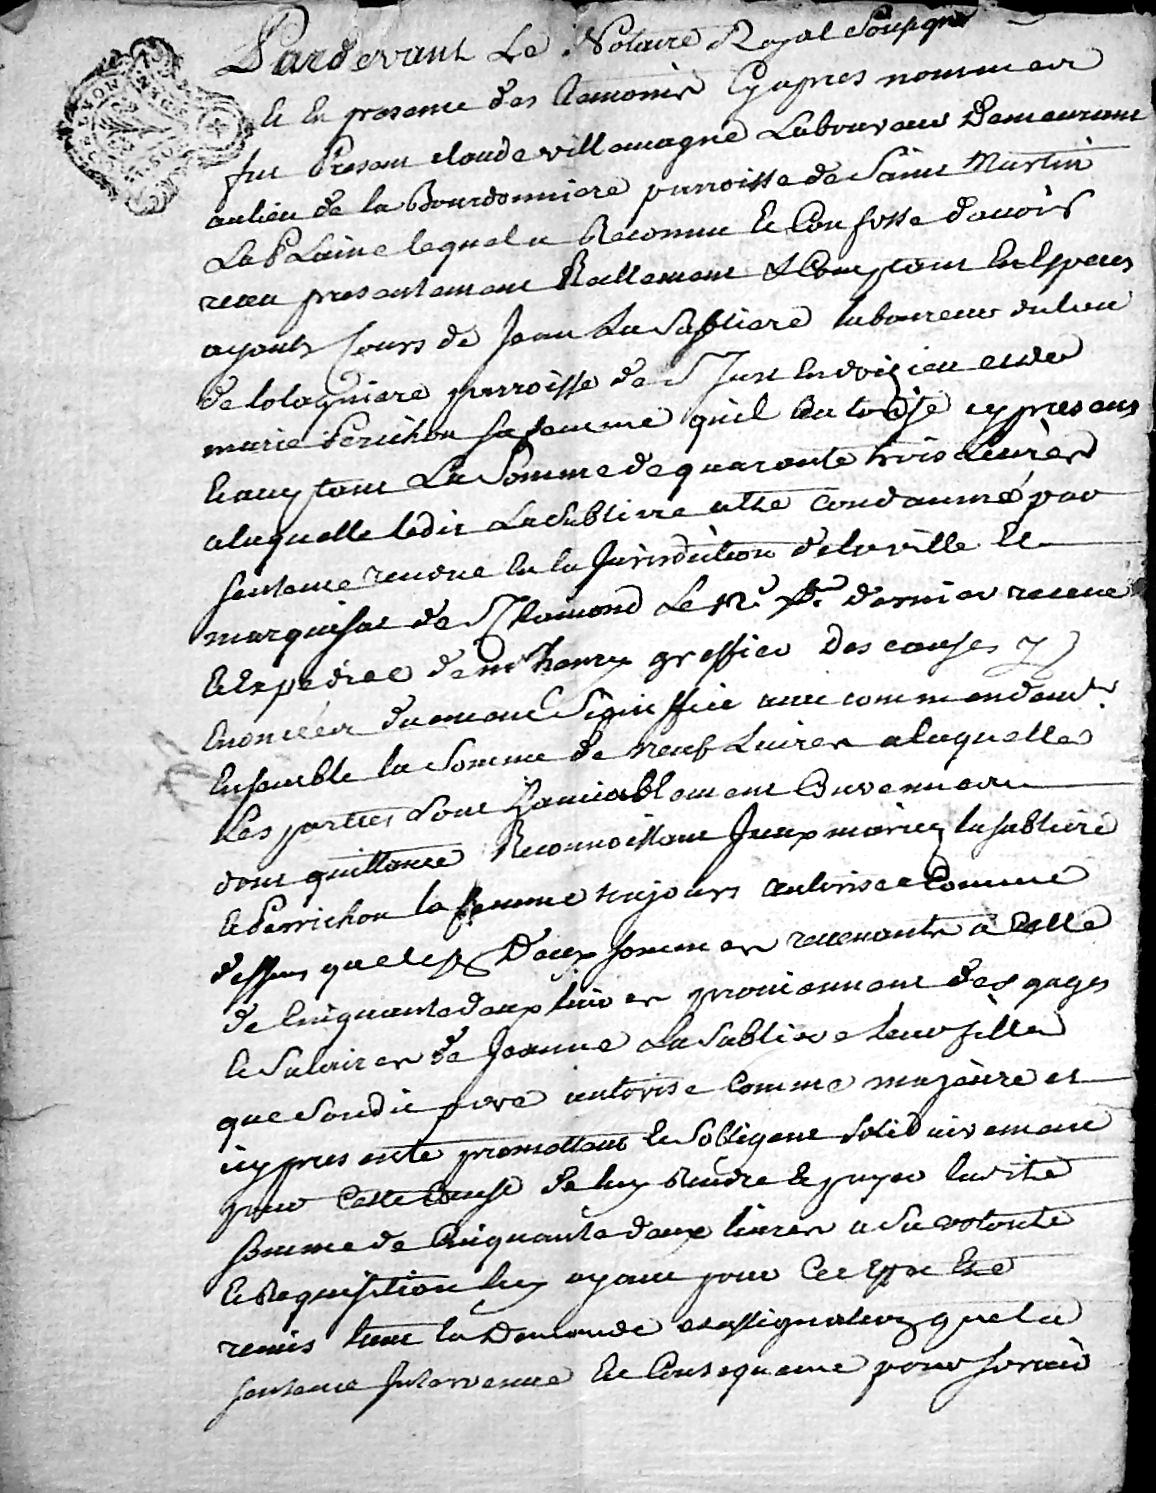 Pardevant Le Notaire Royal Soussigné
et en presence des temoins Cyapres nommer
fut Present claude villemagne Laboureur Demeurant
aulieu de la Bourdonniere parroisse de Saint Martin
La Plaine lequel a Reconnu et Confesse d'avoir
receu presentement Reellement et Comptant en Especes
ayants Cours de Jean La Sabliere laboureur du lieu
de lolagniere parroisse de St Just en doizieu et de
marie Perichon sa femme quil authorise icy presens
Comptant La Somme de quarante trois Livres
a laquelle ledit La Sablière a êtté condamné par
sentence rendue en la Jurisdiction de la ville et
marquisat de St Chamond Le 12e Xbre dernier receue
et Expediée de mr henry greffier Des causes y
Enoncéer duement Signiffiée avec commendemt
Ensemble la Somme de neuf Livres a laquelle
Les parties sont amiablement Convenuer
dont quittance Reconnoissant Iceux mariez lasabliere
et Perrichon la femme toujours autorisée Comme
dessus que les Deux sommes revenants à Celle
de Cinquante deux livres proviennent des gages
et Salaires de Jeanne La Sabliere leur fille
que Sondit pere autorise Comme majeure et
icy presente promettant et Sobligent solidairement
pour Cette Cause de luy Rendre et payer laditte
somme de Cinquante deux livres a Sa volonté
et Requisition luy ayant pour Cet Effet Esté
remis tant la Demande et assignation que la
sentence Intervenue En Consequence pour servir